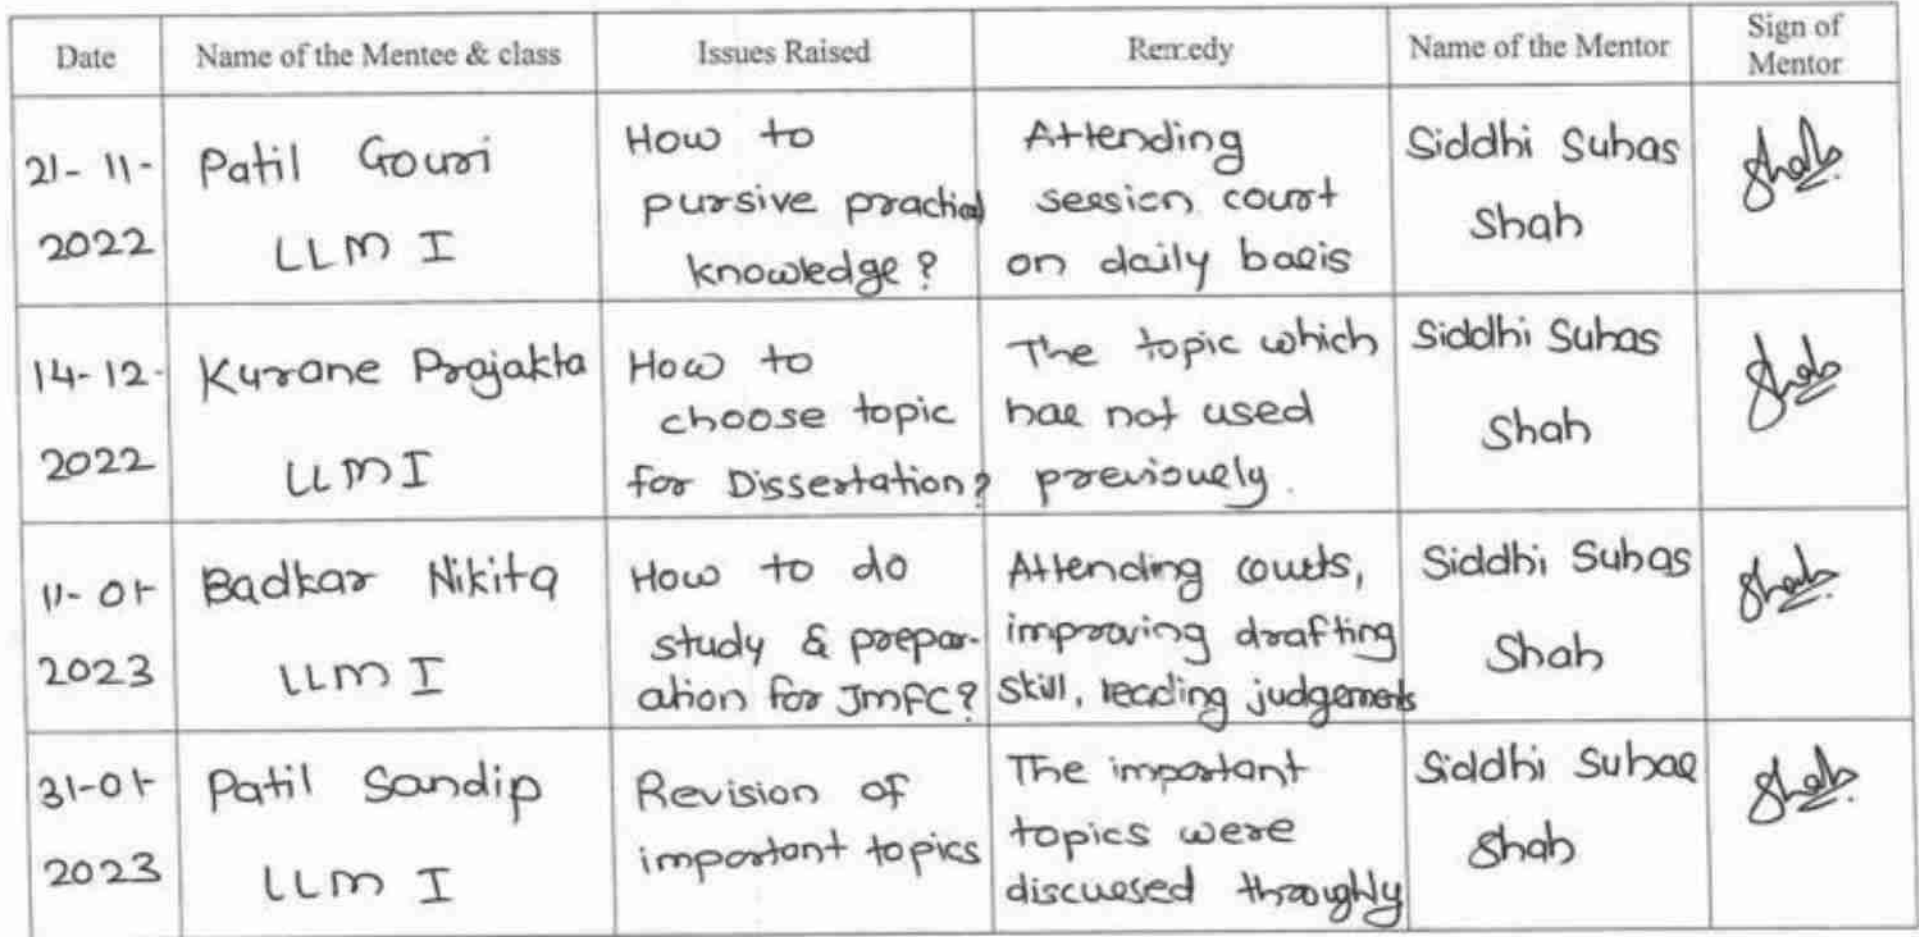 Date
Name of the Mentee & class
Issues Raised
Remedy
Name of the Mentor
Sign of
Mentor
21-11-
2022
Patil Gouri
LLM I
How to
pursive practical
knowledge?
Attending
session court
on daily basis
Siddhi Suhas
Shah
Shah
14-12-
2022
Kurane Prajakta
LLM I
How to
choose topic
for Dissertation?
The topic which
has not used
previously.
Siddhi Suhas
Shah
Shah
11-01-
2023
Badkar Nikita
LLM I
How to do
study & prepar-
ation for JMFC?
Attending courts,
improving drafting
skill, reading judgements
Siddhi Suhas
Shah
Shah
31-01-
2023
Patil Sandip
LLM I
Revision of
important topics
The important
topics were
discussed throughly
Siddhi Suhas
Shah
Shah